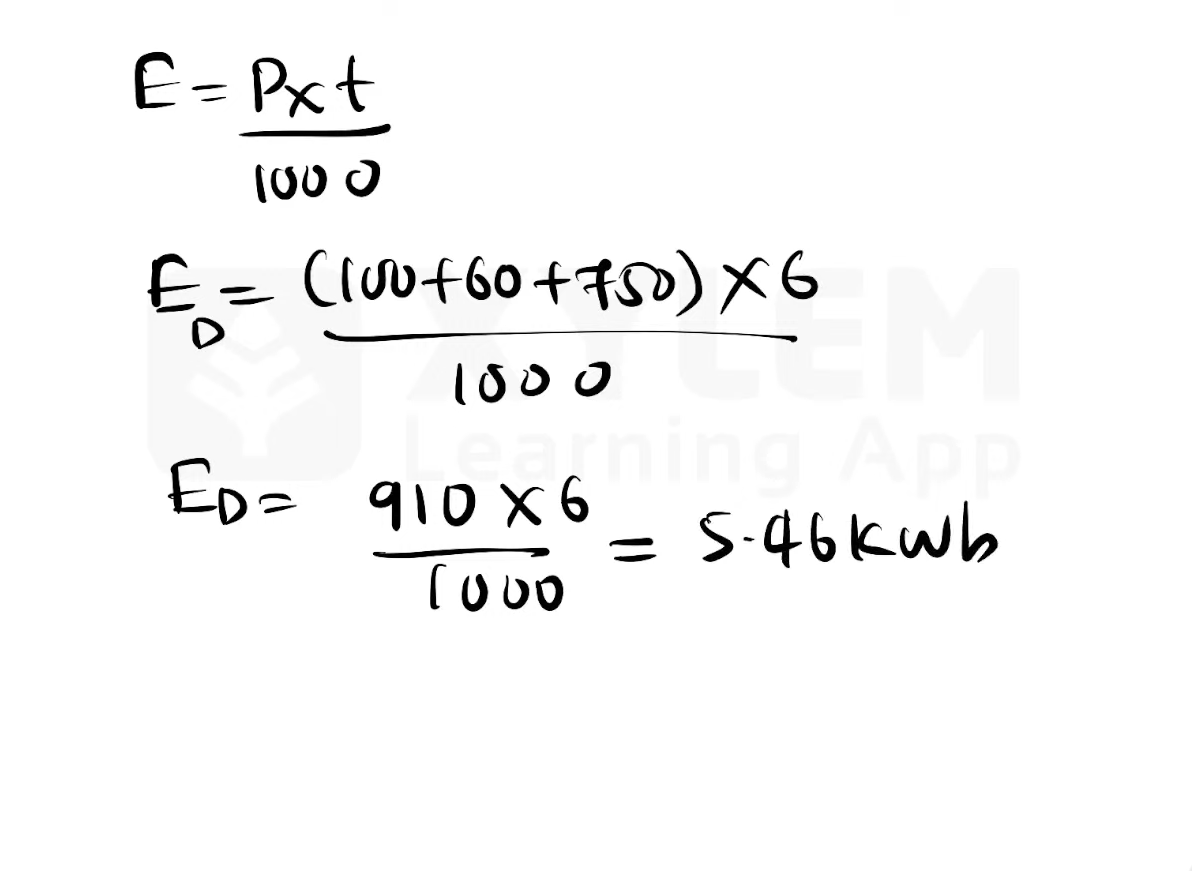 E = P×t
1000
E_D = (100+60+750)×6
1000
E_D = 910×6 = 5.46kwh
1000
XYLEM
Learning App